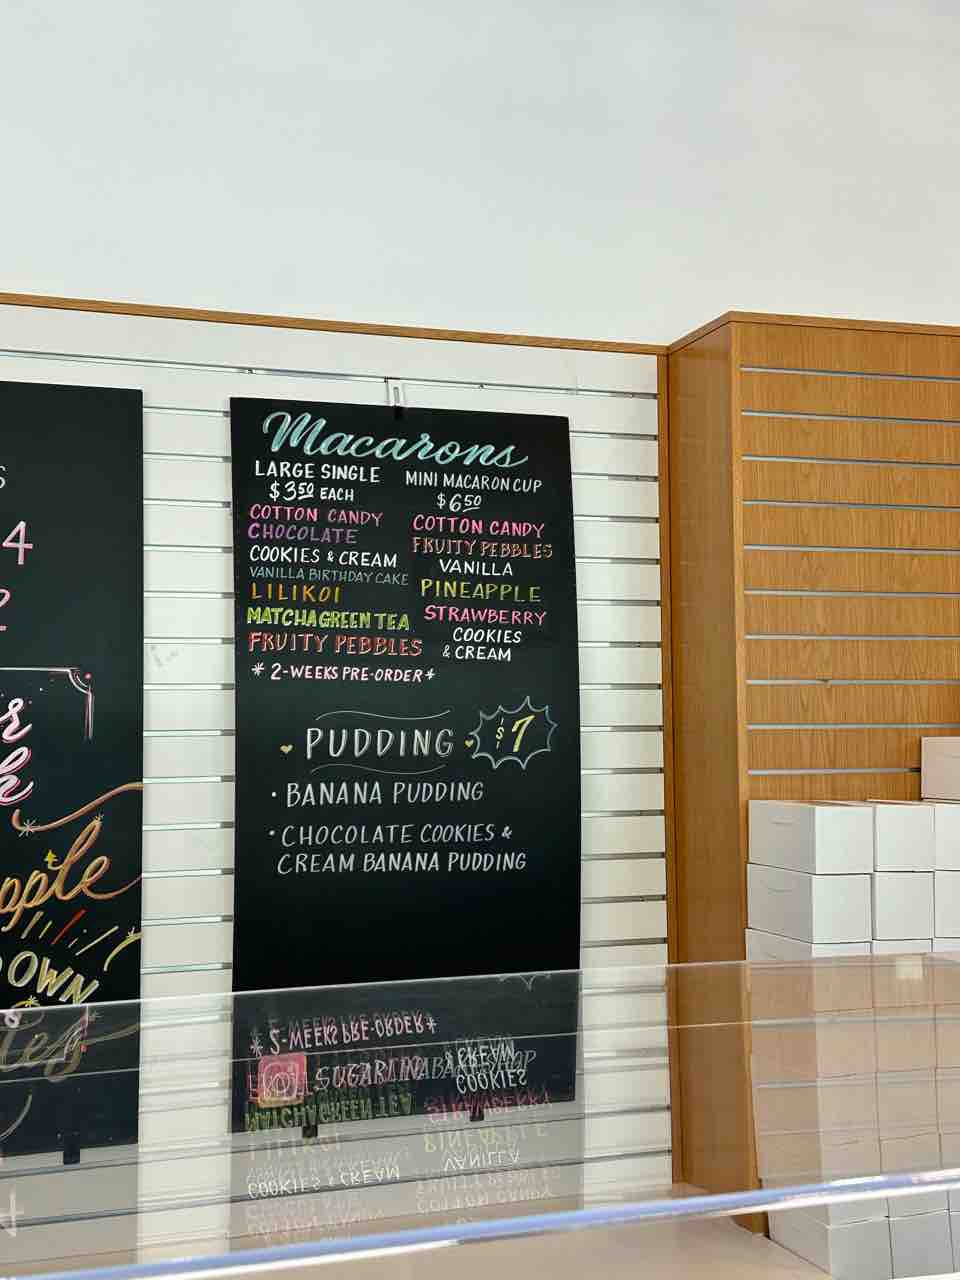 4
2
apple
OWN
Macarons
LARGE SINGLE
$3.50 EACH
COTTON CANDY
CHOCOLATE
COOKIES & CREAM
VANILLA BIRTHDAY CAKE
LILIKOI
MATCHA GREEN TEA
FRUITY PEBBLES
* 2-WEEKS PRE-ORDER *
MINI MACARON CUP
$6.50
COTTON CANDY
FRUITY PEBBLES
VANILLA
PINEAPPLE
STRAWBERRY
COOKIES
& CREAM
PUDDING
$7
• BANANA PUDDING
• CHOCOLATE COOKIES &
CREAM BANANA PUDDING